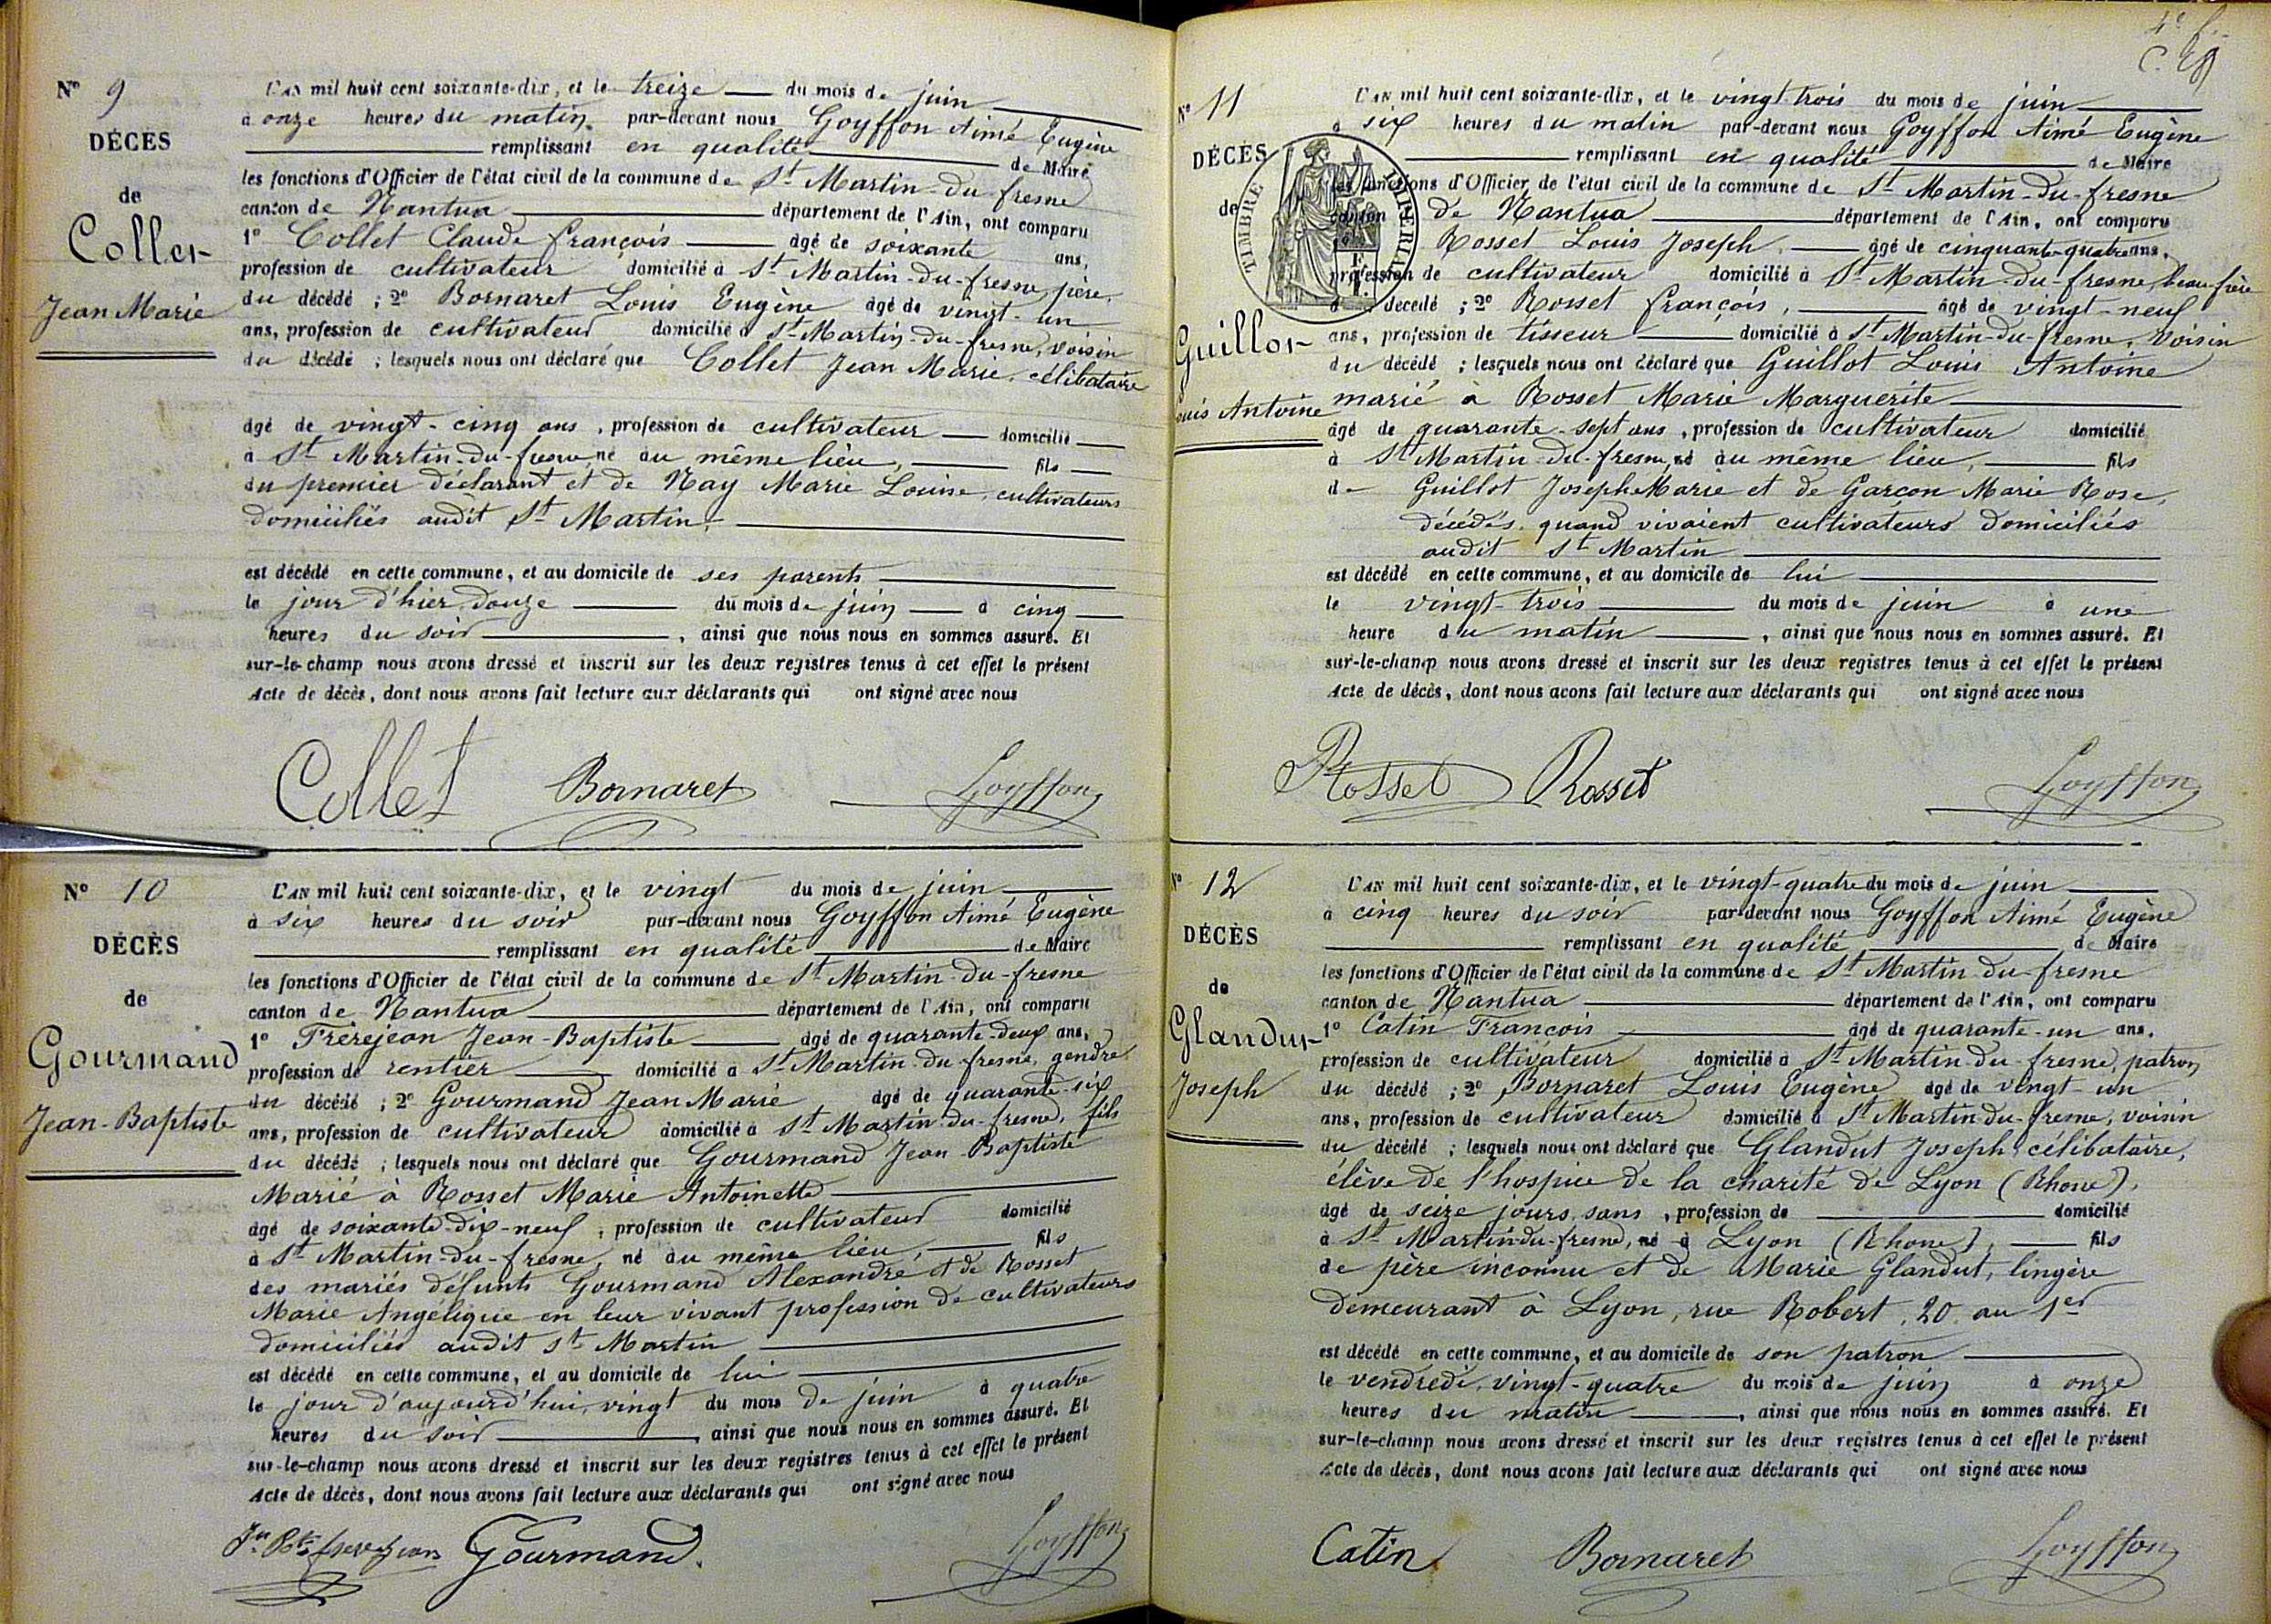 Nº 9
DÉCÈS
de
Collet
Jean Marie
L'AN mil huit cent soixante-dix, et le treize du mois de juin
à onze heures du matin par-devant nous Goyffon Aimé Eugène
remplissant en qualité de Maire
les fonctions d'Officier de l'état civil de la commune de St Martin-du-fresne
canton de Nantua département de l'Ain, ont comparu
1º Collet Claude françois âgé de soixante ans,
profession de cultivateur domicilié à St Martin-du-fresne, père
du décédé ; 2º Bornaret Louis Eugène âgé de vingt-un
ans, profession de cultivateur domicilié à St Martin-du-fresne, voisin
du décédé ; lesquels nous ont déclaré que Collet Jean Marie, célibataire
âgé de vingt-cinq ans, profession de cultivateur domicilié
à St Martin-du-fresne, né au même lieu, fils
du premier déclarant et de Nay Marie Louise, cultivateurs
domiciliés audit St Martin,
est décédé en cette commune, et au domicile de ses parents
le jour d'hier douze du mois de juin à cinq
heures du soir, ainsi que nous nous en sommes assuré. Et
sur-le-champ nous avons dressé et inscrit sur les deux registres tenus à cet effet le présent
Acte de décès, dont nous avons fait lecture aux déclarants qui ont signé avec nous
Collet Bornaret Goyffon
Nº 10
DÉCÈS
de
Gourmand
Jean-Baptiste
L'AN mil huit cent soixante-dix, et le vingt du mois de juin
à six heures du soir par-devant nous Goyffon Aimé Eugène
remplissant en qualité de Maire
les fonctions d'Officier de l'état civil de la commune de St Martin-du-fresne
canton de Nantua département de l'Ain, ont comparu
1º Frèrejean Jean-Baptiste âgé de quarante-deux ans,
profession de rentier domicilié à St Martin-du-fresne, gendre
du décédé ; 2º Gourmand Jean Marie âgé de quarante-six
ans, profession de cultivateur domicilié à St Martin-du-fresne, fils
du décédé ; lesquels nous ont déclaré que Gourmand Jean-Baptiste
Marié à Rosset Marie Antoinette
âgé de soixante-dix-neuf, profession de cultivateur domicilié
à St Martin-du-fresne, né au même lieu, fils
des mariés défunts Gourmand Alexandre et de Rosset
Marie Angélique en leur vivant profession de cultivateurs
domiciliés audit St Martin
est décédé en cette commune, et au domicile de lui
le jour d'aujourd'hui, vingt du mois de juin à quatre
heures du soir, ainsi que nous nous en sommes assuré. Et
sur-le-champ nous avons dressé et inscrit sur les deux registres tenus à cet effet le présent
Acte de décès, dont nous avons fait lecture aux déclarants qui ont signé avec nous
Jn Bte frerejean Gourmand Goyffon
Nº 11
DÉCÈS
de
Guillot
Louis Antoine
TIMBRE IMPERIAL
L'AN mil huit cent soixante-dix, et le vingt-trois du mois de juin
à six heures du matin par-devant nous Goyffon Aimé Eugène
remplissant en qualité de Maire
les fonctions d'Officier de l'état civil de la commune de St Martin-du-fresne
canton de Nantua département de l'Ain, ont comparu
Rosset Louis Joseph, âgé de cinquante-quatre ans,
profession de cultivateur domicilié à St Martin-du-fresne, beau-frère
du décédé ; 2º Rosset françois, âgé de vingt-neuf
ans, profession de tisseur domicilié à St Martin-du-fresne, voisin
du décédé ; lesquels nous ont déclaré que Guillot Louis Antoine
marié à Rosset Marie Marguerite
âgé de quarante-sept ans, profession de cultivateur domicilié
à St Martin-du-fresne, né au même lieu, fils
de Guillot Joseph Marie et de Garçon Marie Rose,
décédés, quand vivaient cultivateurs domiciliés
audit St Martin
est décédé en cette commune, et au domicile de lui
le vingt-trois du mois de juin à une
heure du matin, ainsi que nous nous en sommes assuré. Et
sur-le-champ nous avons dressé et inscrit sur les deux registres tenus à cet effet le présent
Acte de décès, dont nous avons fait lecture aux déclarants qui ont signé avec nous
Rosset Rosset Goyffon
Nº 12
DÉCÈS
de
Glandut
Joseph
L'AN mil huit cent soixante-dix, et le vingt-quatre du mois de juin
à cinq heures du soir par-devant nous Goyffon Aimé Eugène
remplissant en qualité de Maire
les fonctions d'Officier de l'état civil de la commune de St Martin-du-fresne
canton de Nantua département de l'Ain, ont comparu
1º Catin François âgé de quarante-un ans,
profession de cultivateur domicilié à St Martin-du-fresne, patron
du décédé ; 2º Bornaret Louis Eugène âgé de vingt-un
ans, profession de cultivateur domicilié à St Martin-du-fresne, voisin
du décédé ; lesquels nous ont déclaré que Glandut Joseph célibataire,
élève de l'hospice de la charité de Lyon (Rhone),
âgé de seize jours, sans, profession de domicilié
à St Martin-du-fresne, né à Lyon (Rhone), fils
de père inconnu et de Marie Glandut, lingère
demeurant à Lyon, rue Robert, 20, au 1er
est décédé en cette commune, et au domicile de son patron
le vendredi, vingt-quatre du mois de juin à onze
heures du matin, ainsi que nous nous en sommes assuré. Et
sur-le-champ nous avons dressé et inscrit sur les deux registres tenus à cet effet le présent
Acte de décès, dont nous avons fait lecture aux déclarants qui ont signé avec nous
Catin Bornaret Goyffon